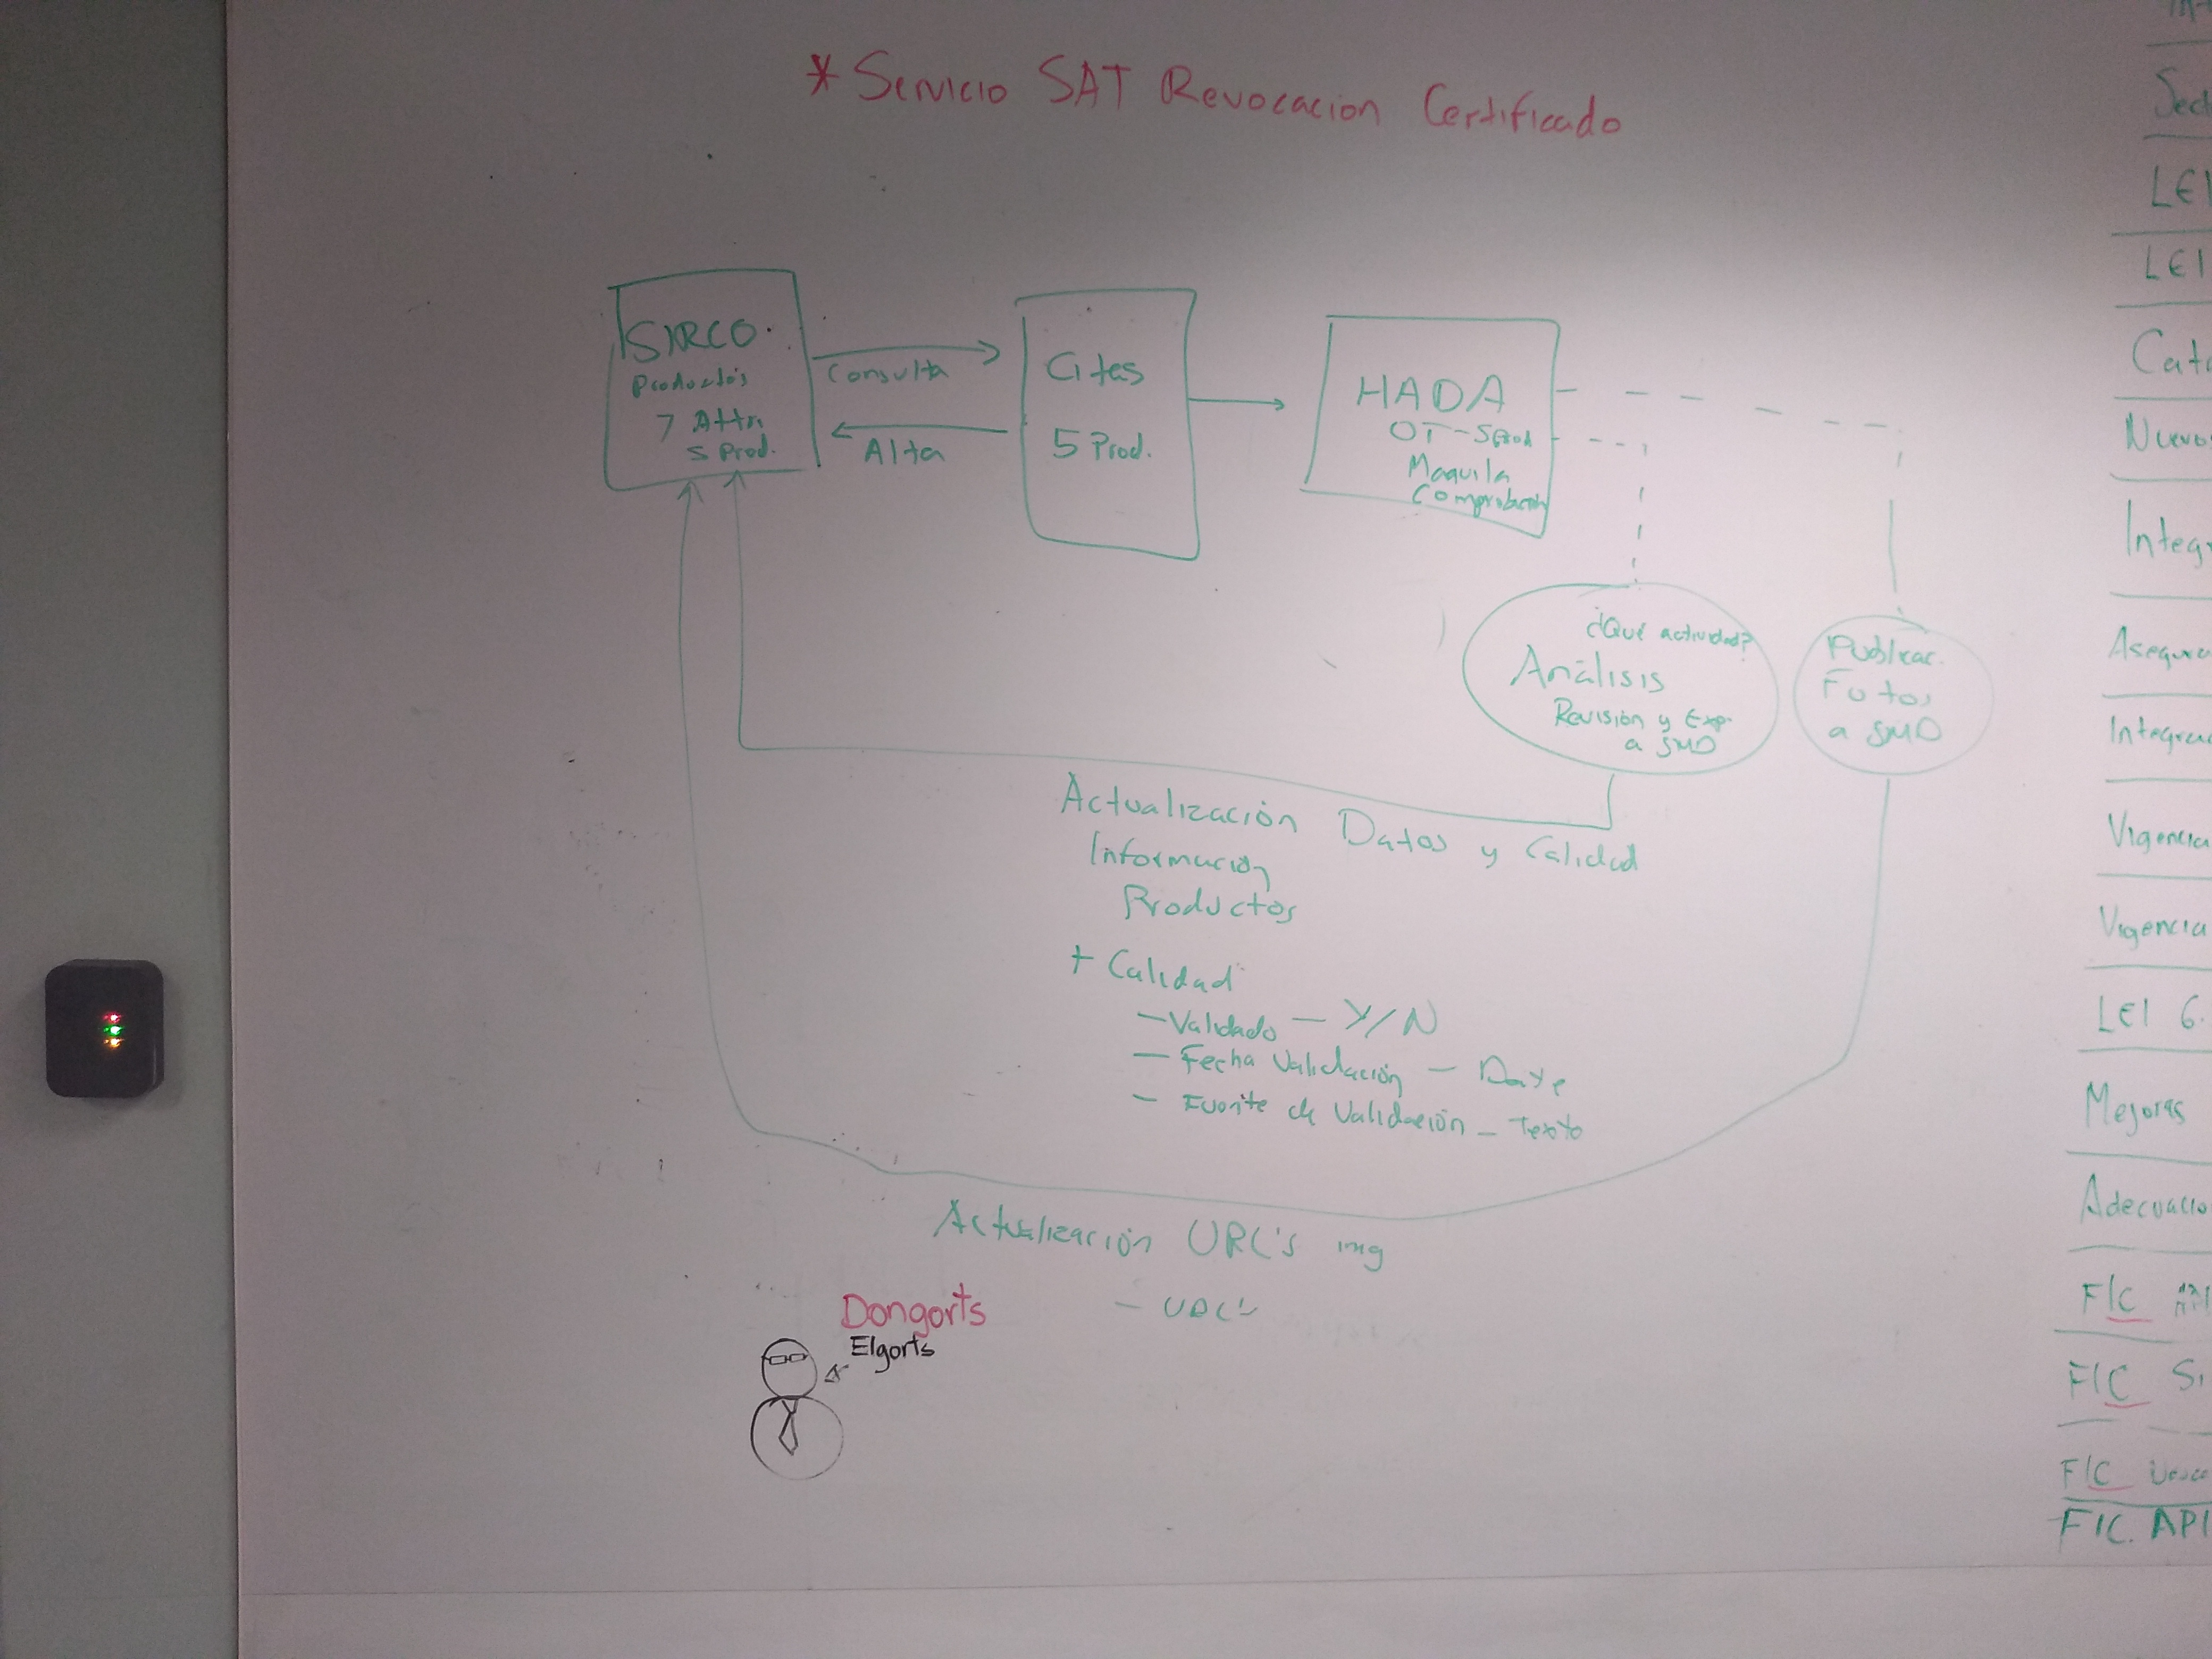 * Servicio SAT Revocacion Certificado
SIRCO.
Productos
7 Attr.
5 Prod.
Consulta
Alta
Citas
5 Prod.
HADA
OT-5Prod
Maquila
Comprobación
¿Qué actividad?
Análisis
Revisión y Exp.
a SMD
Publicac.
Fotos
a SMD
Actualización Datos y Calidad
Información
Productos
+ Calidad
- Validado - Y/N
- Fecha Validación - Date
- Fuente de Validación - Texto
Actualización URL's img
- URL's
Dongorts
Elgorts
LEI
LEI
Nuevos
Vigencia
Vigencia
LEI 6.
Mejoras
FIC
FIC
FIC
FIC. API